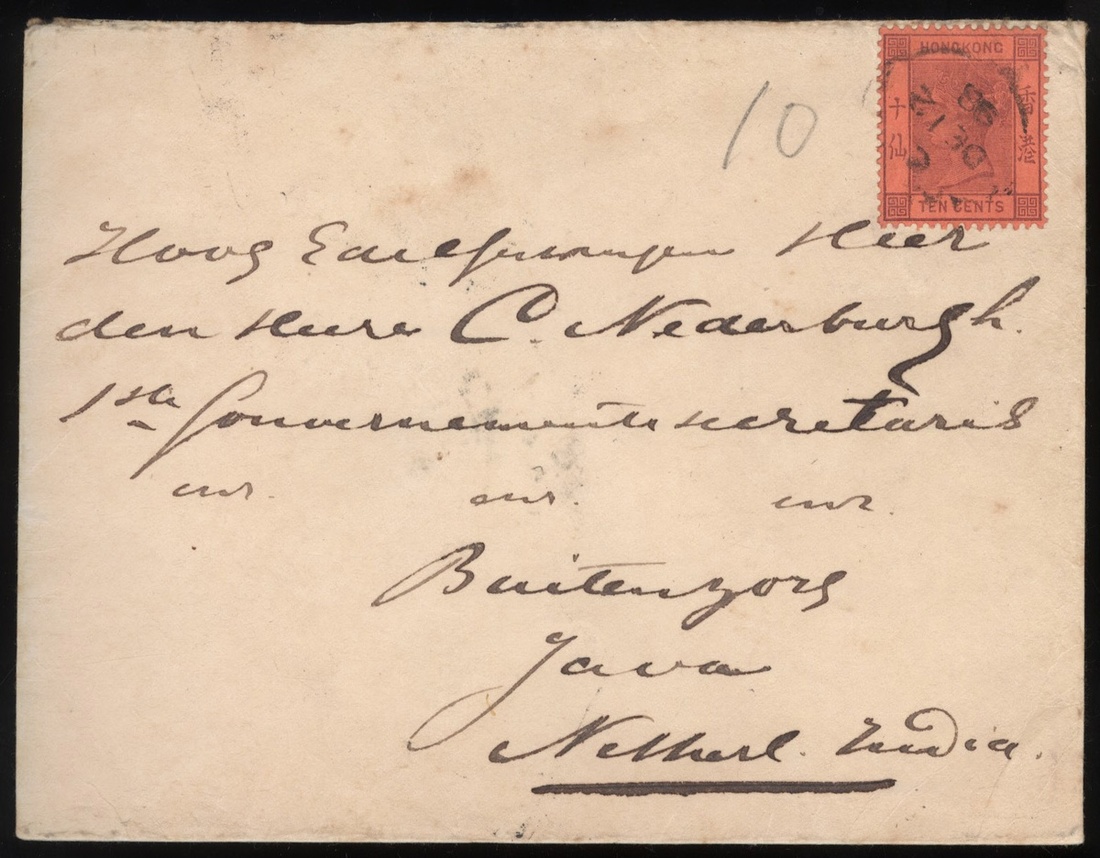 HONG KONG
十仙
香港
TEN CENTS
DE 30
10
Hoog Edelgestrengen Heer
den Heere C. Nederburgh.
1ste Gouvernements secretaris
enz. enz. enz.
Buitenzorg
Java
Netherl. India.